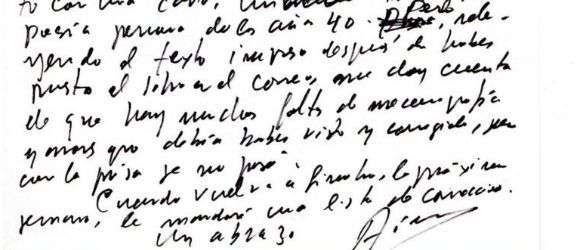 to con una
poesía peruana de los años 40. Pero, rele-
yendo el texto impreso después de haber
puesto el libro en el correo, me doy cuenta
de que hay muchas faltas de mecanografía
y errores que debía haber visto y corregido, pero
con la prisa se me pasó.
Cuando vuelva a Lincoln, la próxima
semana, le mandaré una lista de correcciones.
Un abrazo.